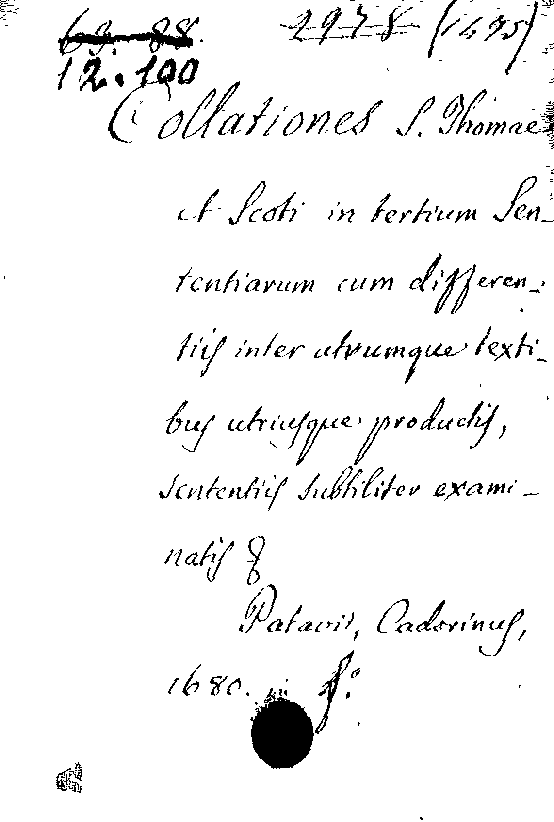 63. 88. 2978 (1495)
12.100
Collationes S. Thomae
et Scoti in tertium Sen-
tentiarum cum differen-
tiis inter utrumque texti-
bus utriusque productis,
sententiis subtiliter exami-
natis &
Patavii, Cadorinus,
1680. f:o